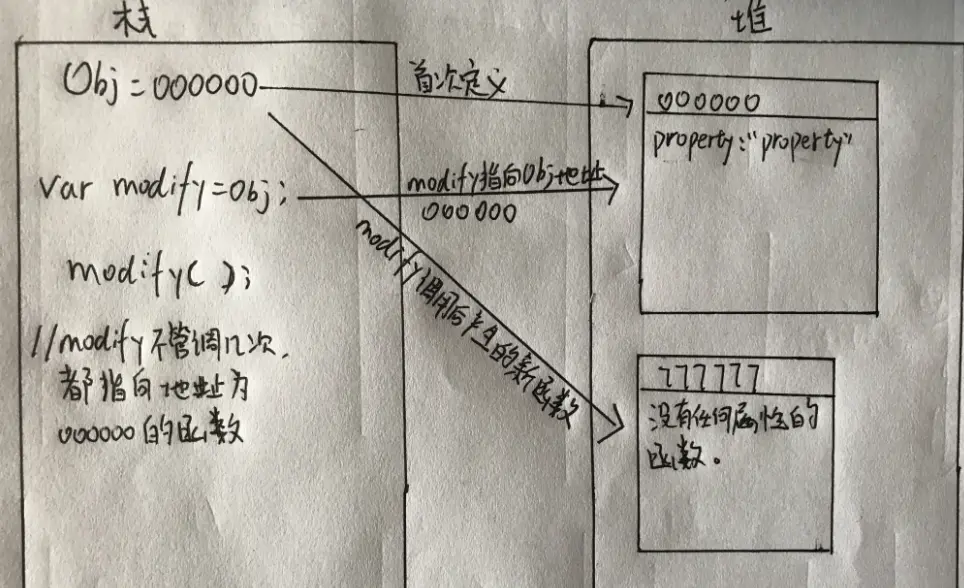 栈
堆
Obj = 000000
首次定义
000000
property:"property"
var modify=Obj;
modify指向Obj地址
000000
modify( );
modify调用后产生的新函数
//modify不管调几次,
都指向地址为
000000的函数
777777
没有任何属性的
函数。